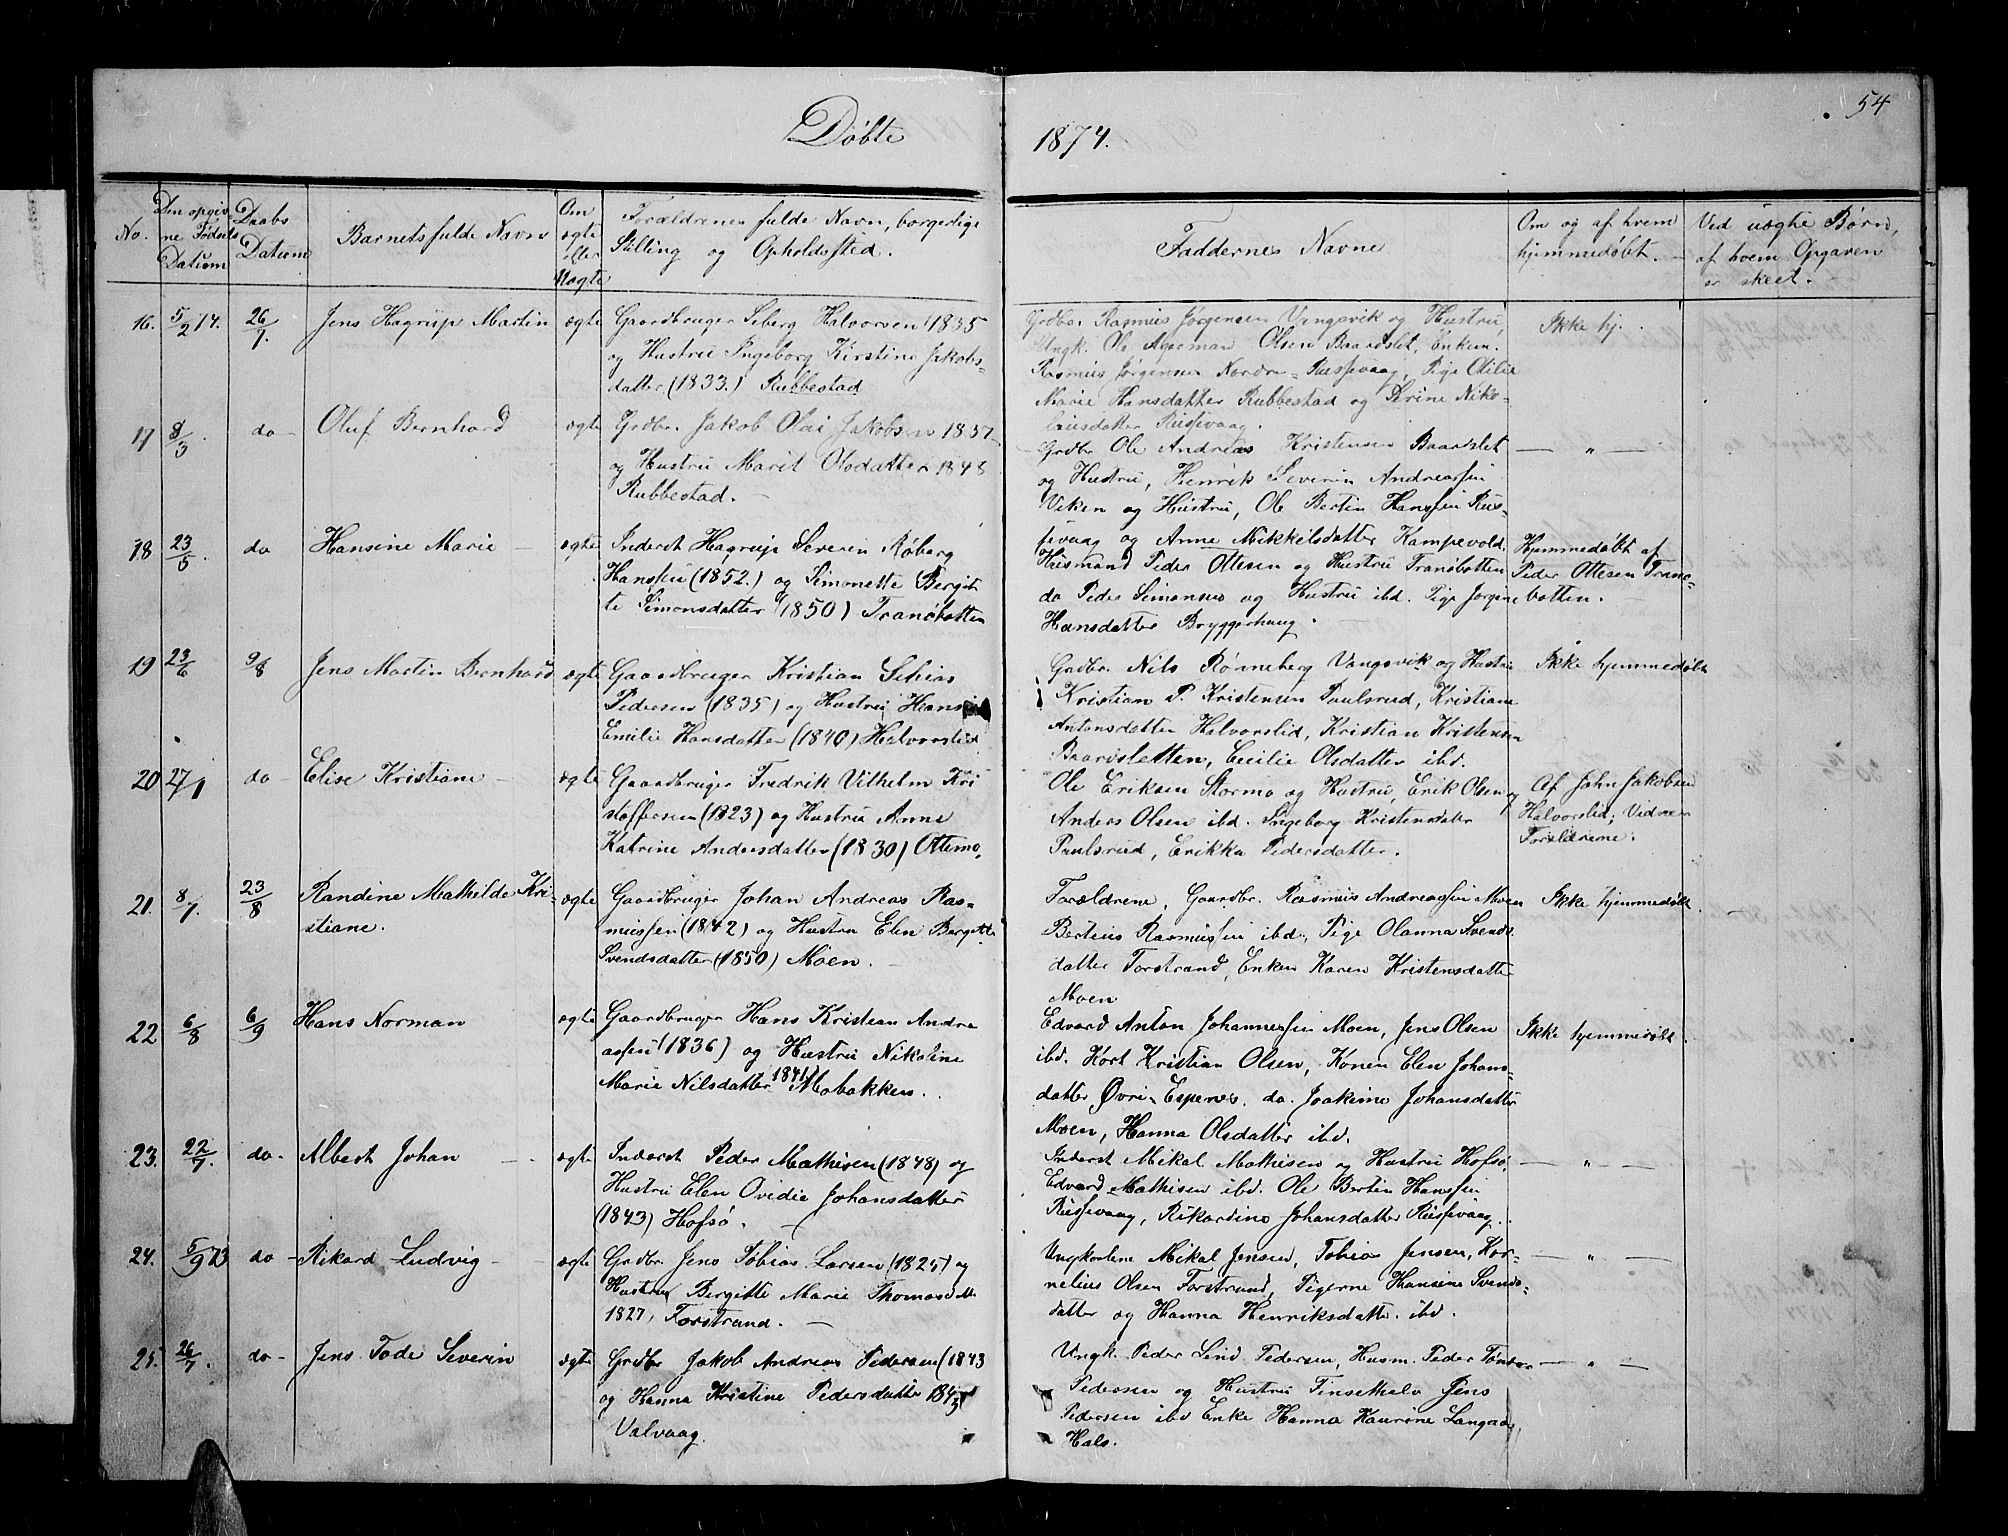 54
Døbte 1874.
No. Den opgiv- Daabs Barnets fulde Navn Om Forældrenes fulde Navn, borgerlige Faddernes Navne Om og af hvem Ved uægte Børn,
ne Fødsels Datum ægte Stilling og Opholdssted. hjemmedøbt. af hvem Opgaven
Datum eller er skeet.
Uægte
16. 5/2 74. 26/7. Jens Hagrup Martin ægte Gaardbruger Seberg Halvorsen (1835
og Hustru Ingeborg Kirstine Jakobs-
datter (1833.) Rubbestad
Grdbr. Rasmus Jørgensen Vangsvik og Hustru,
Ungk. Ole Ole Olsen Baardslet, Enkem.
Rasmus Jørgensen Nordre-Russevaag, Pige Otilie
Marie Hansdatter Rubbestad og Serine Niko-
laisdatter Russevaag.
Ikke hj.
17 8/3. do- Oluf Bernhard ægte Grdbr. Jakob Olai Jakobsen 1837
og Hustru Marit Olsdatter 1848
Rubbestad.
Grdbr Ole Andreas Kristensen Baardslet
og Hustru, Henrik Severin Andreassen
Viken og Hustru, Ole Bertin Hanssen Rus-
sevaag og Anne Mikkelsdatter Kampevold.
— " —
18 23/5. do Hansine Marie - ægte Inderst Hagrup Severin Røberg
Hanssen (1852.) og Simonette Bergit-
te Simonsdatter (1850) Tranøbotten
Husmand Peder Ottesen og Hustru Tranøbotten
do Peder Simonsen og Hustru ibd. Pige Jørgine
Hansdatter Bryggerhaug.
Hjemmedøbt af
Peder Ottesen Tranø-
botten.
19 23/6 9/8 Jens Martin Bernhard ægte Gaardbruger Kristian
Pedersen (1835) og Hustru
Emilie Hansdatter (1840) Halvorslid
Grdbr. Nils Rønneberg Vangsvik og Hustru
Kristian P. Kristensen Paulsrud, Kristiane
Antonsdatter Halvorslid, Kristian Kristensen
Baardsletten, Cecilie Olsdatter ibd.
Ikke hjemmedøbt
20 27/1 do- Elise Kristiane - ægte Gaardbruger Fredrik Vilhelm Kri
stoffersen (1823) og Hustru Anne
Katrine Andersdatter (1830) Ottermo,
Ole Eriksen Stormo og Hustru, Erik Olsen og
Anders Olsen ibd. Ingeborg Kristensdatter
Paulsrud, Erikka Pedersdatter.
Af John Jakobsen
Halvorslid; Vidner
Forældrene.
21. 8/7. 23/8 Randine Mathilde Kri-
stiane.
ægte Gaardbruger Johan Andreas Ras-
mussen (1842) og Hustru Elen Bergitte
Svendsdatter (1850) Moen.
Forældrene, Gaardbr. Rasmus Andreassen Moen
Berteus Rasmussen ibd, Pige Olanna Svends-
datter Forstrand, Enken Karen Kristensdatter
Moen
Ikke hjemmedøbt.
22 6/8 6/9 Hans Norman ægte Gaardbruger Hans Kristian Andre
assen (1836) og Hustru Nikoline
Marie Nilsdatter 1841) Mobakken.
Edvard Anton Johannessen Moen, Jens Olsen
ibd. Kort Kristian Olsen, Konen Elen Johans-
datter Øvri-Espenes. do. Joakime Johansdatter
Moen, Hanna Olsdatter ibd.
Ikke hjemmedøbt.
23. 22/7. do- Albert Johan - ægte Inderst Peder Mathisen (1848) og
Hustru Elen Ovidie Johansdatter
(1843) Hofsø.
Inderst Mikal Mathisen og Hustru Hofsø,
Edvard Mathisen ibd. Ole Bertin Hanssen
Russevaag, Rikardine Johansdatter Russevaag.
— " —
24. 5/9 73 do- Rikard Ludvig - ægte Grdbr. Jens Tobias Larsen (1825) og
Hustru Bergitte Marie Thomasd
1827, Forstrand.
Ungkarlene Mikal Jensen, Tobias Jensen, Kor-
nelius Olsen Forstrand, Pigerne Hansine Svends-
datter og Hanna Henriksdatter ibd.
— " —
25. 26/7. do- Jens Tode Severin ægte Grdbr Jakob Andreas Pedersen (1843
og Hanna Kristine Pedersdatter 1843)
Valvaag.
Ungk. Peder Lind Pedersen, Husm. Peder
Pedersen og Hustru Finsethals Jens
Pedersen ibd Enke Hanna
Hals.
— " —